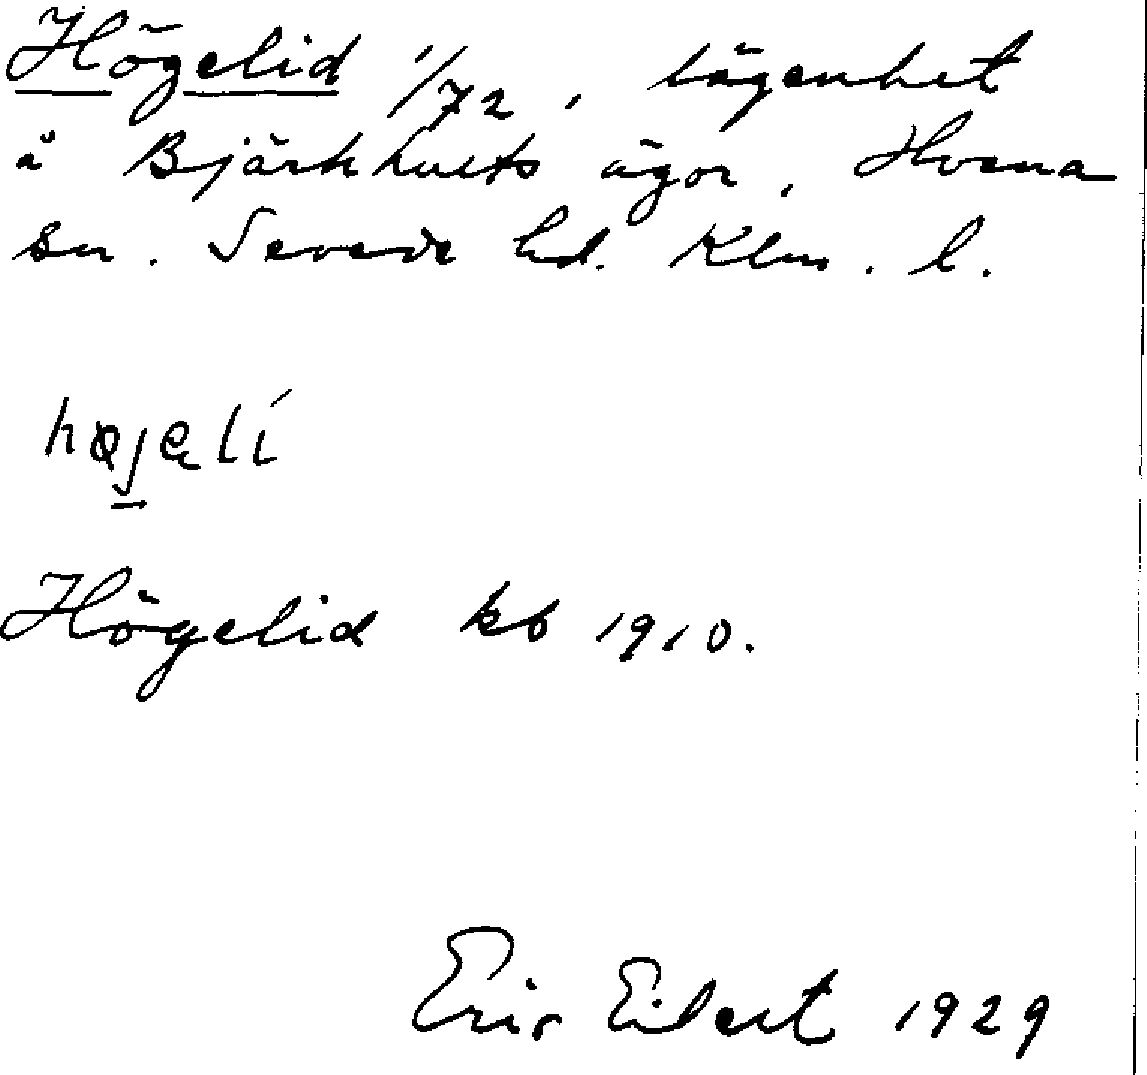 Högelid 1/72, lägenhet
å Björkhults ägor, Hvena
sn. Sevede hd. Klm. l.
högelí
Högelid kb 1910.
Eric Eilert 1929